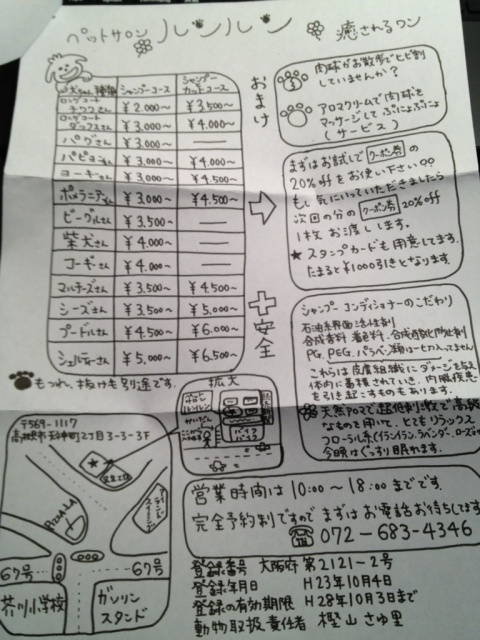 ペットサロン ルンルン 癒されるワン
犬ちゃん種類 シャンプーコース シャンプーカットコース
ロングコートチワワさん ¥2.000~ ¥3,500~
ロングコートダックスさん ¥3,000~ ¥4.000~
パグさん ¥3,000~ —
パピヨンさん ¥3,000~ ¥4,000~
ヨーキーさん ¥3,000~ ¥4.500~
ポメラニアンさん ¥3,000~ ¥4,500~
ビーグルさん ¥3,500~ —
柴犬さん ¥4,000~ —
コーギーさん ¥4,000~ —
マルチーズさん ¥3,500~ ¥4,500~
シーズーさん ¥3,500~ ¥5,000~
プードルさん ¥4,500~ ¥6,000~
シェルティーさん ¥5,000~ ¥6,500~
もつれ、抜け毛別途です。
おまけ
安全
肉球がお散歩でヒビ割
していませんか?
アロマクリームで肉球を
マッサージしてぷにょぷにょ
(サービス)
まずはお試しでクーポン券の
20%offをお使い下さい
もし気にいっていただきましたら
次回の分のクーポン券20%off
1枚お渡しします。
★スタンプカードも用意してます。
たまると¥1000引きとなります。
シャンプー コンディショナーのこだわり
石油系界面活性剤
合成香料 着色料、合成酸化防止剤
PG、PEG、パラベン類は一切入ってません
これらは皮膚組織にダメージを与え
体内に蓄積されていき、内服疾患
を引き起こすものもあります。
天然アロマで超低刺激で高級
なものを用いて、とてもリラックス
フローラル系(イランイラン、ラベンダー、ローズ
今晩はぐっすり眠れます。
拡大
〒569-1117
高槻市天神町2丁目3-3-3F
67号
67号
芥川小学校
ガソリン
スタンド
営業時間は10:00~18:00までです。
完全予約制ですのでまずはお電話お待ちしてます
072-683-4346
登録番号 大阪府第2121-2号
登録年月日 H23年10月4日
登録の有効期限 H28年10月3日まで
動物取扱責任者 樫山さゆ里